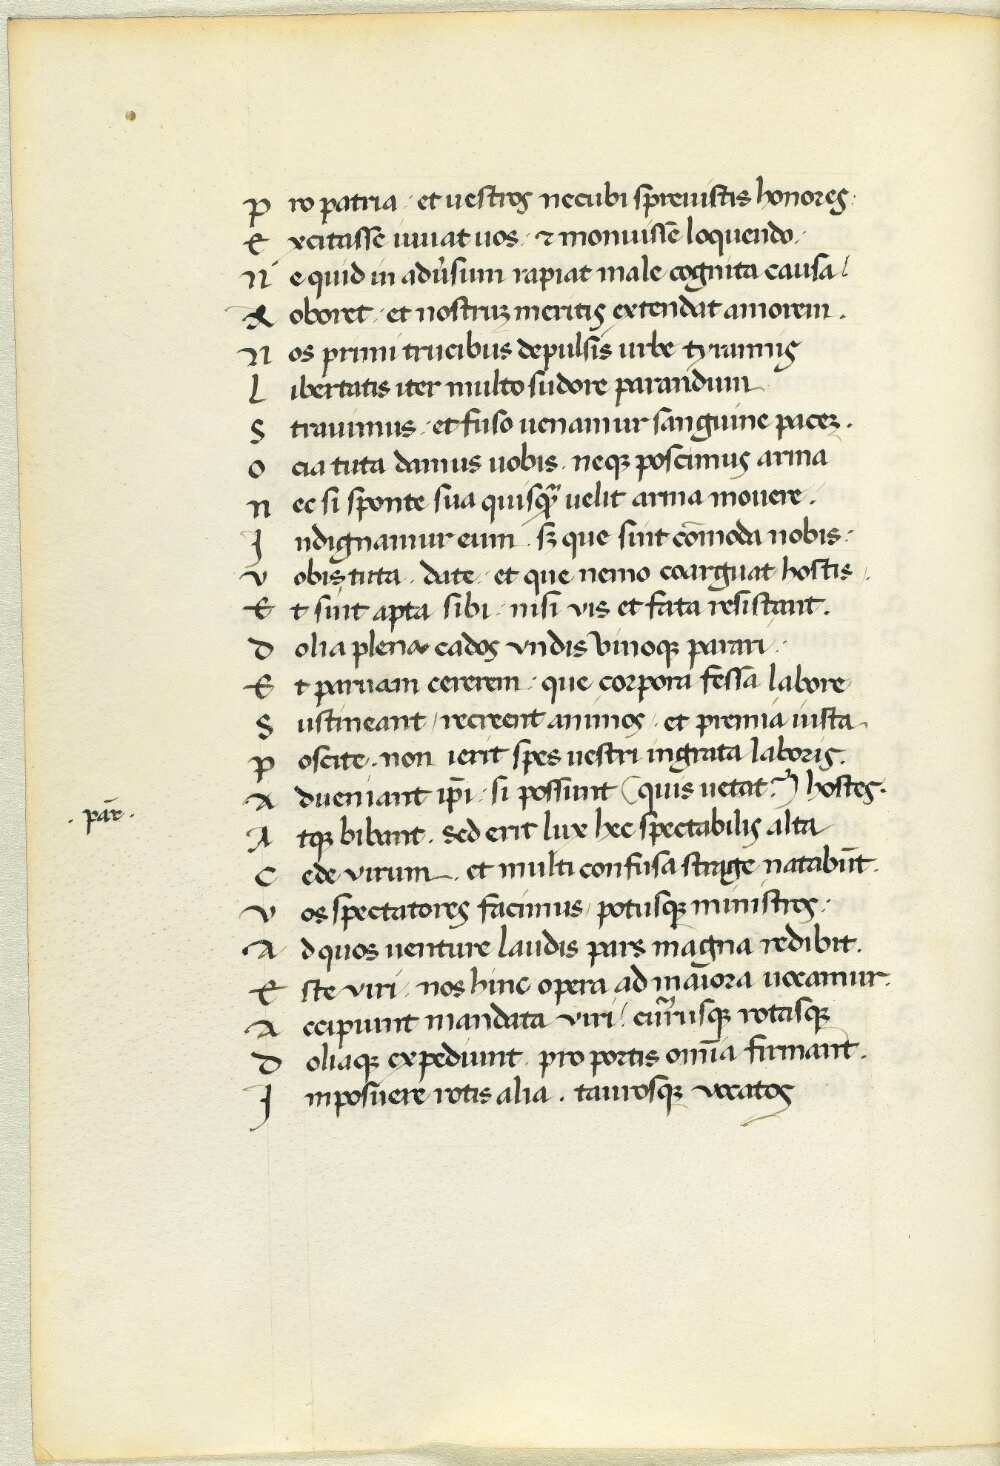 Pro patria · et uestros necubi spreuistis honores ·
Excitasse iuuat uos · ⁊ monuissē loquendo ·
Ne quid in adu̓sum rapiat male cognita causa /
Roboret · et nostruꝫ meritis extendat amorem .
Nos primi trucibus depulsis urbe tyrannis
Libertatis iter multo sudore parandum
Strauimus · et fuso uenamur sanguine paceꝫ .
Ocia tuta damus uobis . neqꝫ poscimus arma
Nec si sponte sua quisqꝫ uelit arma mouere .
Indignamur eum . sꝫ que sint cōmoda nobis ·
Vobis tuta . date · et que nemo coarguat hostis .
Et sint apta sibi · nisi vis et fata resistant .
Dolia plena cados vndis vinoqꝫ parari ·
Et paruam cererem · que corpora fessa labore
Sustineant / recreent animos · et premia iusta
Poscite . non ierit spes uestri ingrata laboris .
Adueniant ip̄i · si possunt ( quis uetat ? ) hostes .
· par̄ .
Atqꝫ bibant . sed erit lux hec spectabilis alta
Cede virum . et multi confusa strage natabūt .
Vos spectatores facimus / potusqꝫ ministros ·
Ad quos uenture laudis pars magna redibit .
Este viri · nos hinc opera ad maiora uocamur .
Accipiunt mandata viri / cur̓usqꝫ rotasqꝫ
Doliaqꝫ expediunt . pro portis om̄ia firmant .
Imposuere rotis alia . taurosqꝫ vocatos